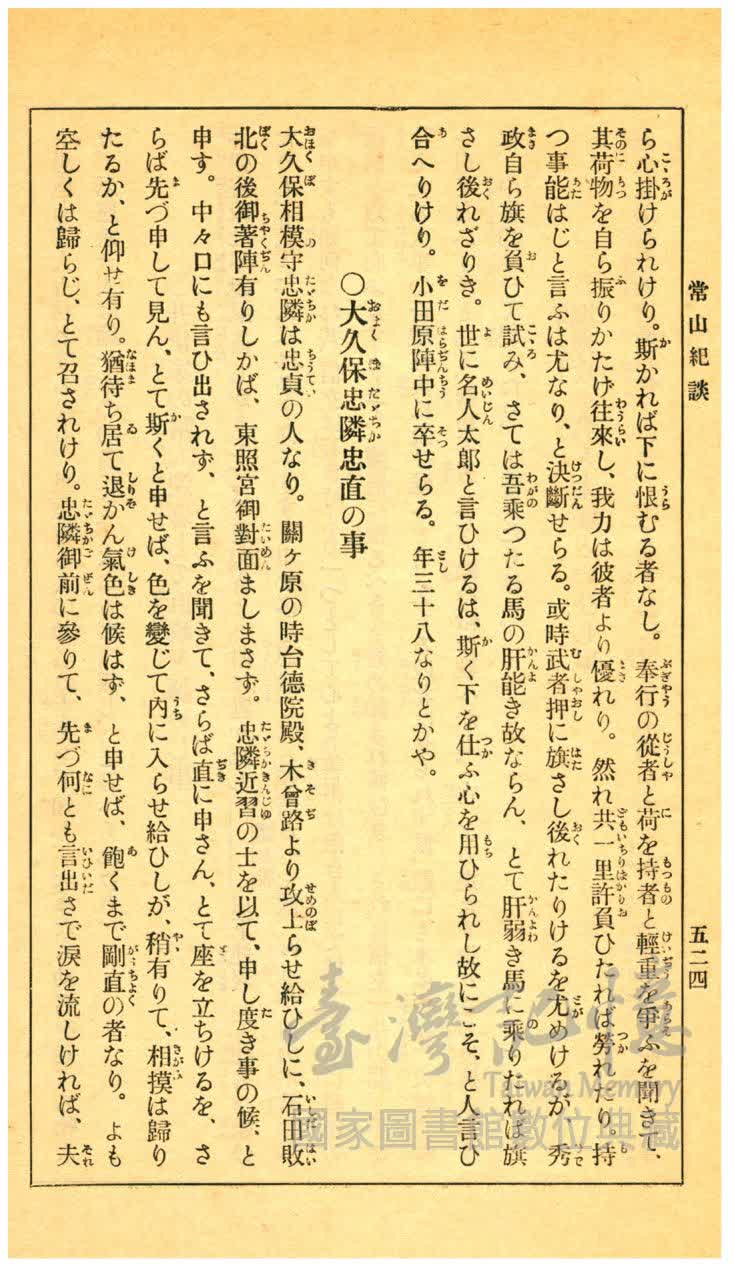 常山紀談
五二四
ら心掛けられけり。斯かれば下に恨むる者なし。奉行の從者と荷を持者と輕重を爭ふを聞きて、
其荷物を自ら振りかたけ往來し、我力は彼者より優れり。然れ共一里許負ひたれば勞れたり。持
つ事能はじと言ふは尤なり、と決斷せらる。或時武者押に旗さし後れたりけるを尤めけるが、秀
政自ら旗を負ひて試み、さては吾乘つたる馬の肝能き故ならん、とて肝弱き馬に乘りたれば旗
さし後れざりき。世に名人太郎と言ひけるは、斯く下を仕ふ心を用ひられし故にこそ、と人言ひ
合へりけり。小田原陣中に卒せらる。年三十八なりとかや。
○大久保忠隣忠直の事
大久保相模守忠隣は忠貞の人なり。關ヶ原の時台德院殿、木曾路より攻上らせ給ひしに、石田敗
北の後御著陣有りしかば、東照宮御對面ましまさず。忠隣近習の士を以て、申し度き事の候、と
申す。中々口にも言ひ出されず、と言ふを聞きて、さらば直に申さん、とて座を立ちけるを、さ
らば先づ申して見ん、とて斯くと申せば、色を變じて內に入らせ給ひしが、稍有りて、相摸は歸り
たるか、と仰せ有り。猶待ち居て退かん氣色は候はず、と申せば、飽くまで剛直の者なり。よも
空しくは歸らじ、とて召されけり。忠隣御前に參りて、先づ何とも言出さで淚を流しければ、夫
臺灣記憶
Taiwan Memory
國家圖書館數位典藏